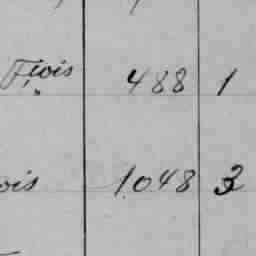 Flois 488 1
ois 1048 3